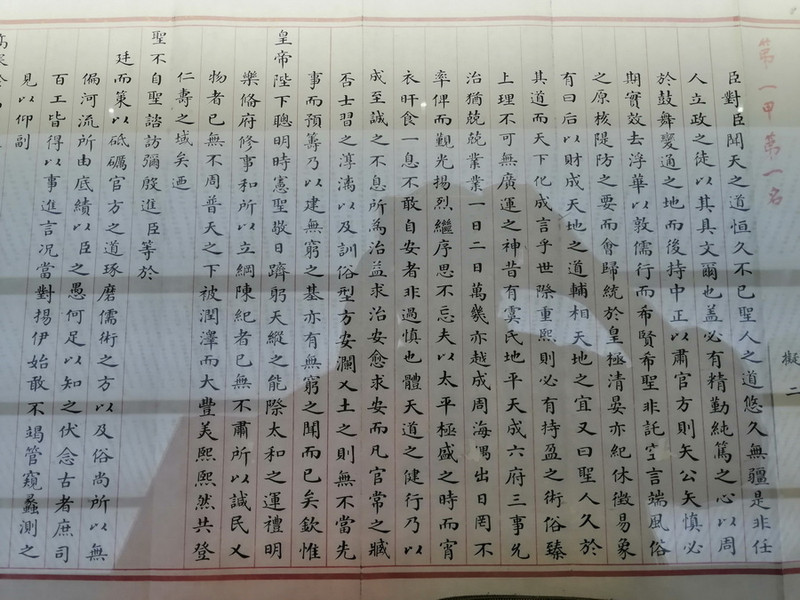 擬二
第一甲第一名
臣對臣聞天之道恒久不已聖人之道悠久無疆是非任
人立政之徒以其具文爾也盖必有精勤純篤之心以周
於鼓舞變通之地而後持中正以肅官方則矢公矢慎必
期實效去浮華以敦儒行而希賢希聖非託空言端風俗
之原核隄防之要而會歸統於皇極清晏亦紀休徵易象
有曰后以財成天地之道輔相天地之宜又曰聖人久於
其道而天下化成言乎世際重熙則必有持盈之術俗臻
上理不可無廣運之神昔有虞氏地平天成六府三事允
治猶兢兢業業一日二日萬幾亦越成周海隅出日罔不
率俾而覲光揚烈繼序思不忘夫以太平極盛之時而宵
衣旰食一息不敢自安者非過慎也體天道之健行乃以
成至誠之不息所為治益求治安愈求安而凡官常之臧
否士習之淳漓以及訓俗型方安瀾乂土之則無不當先
事而預籌乃以建無窮之基亦有無窮之聞而已矣欽惟
皇帝陛下聰明時憲聖敬日躋躬天縱之能際太和之運禮明
樂脩府修事和所以立綱陳紀者已無不肅所以諴民乂
物者已無不周普天之下被潤澤而大豐美熙熙然共登
仁壽之域矣迺
聖不自聖諮訪彌殷進臣等於
廷而策以砥礪官方之道琢磨儒術之方以及俗尚所以無
偏河流所由底績以臣之愚何足以知之伏念古者庶司
百工皆得以事進言況當對揚伊始敢不竭管窺蠡測之
見以仰副